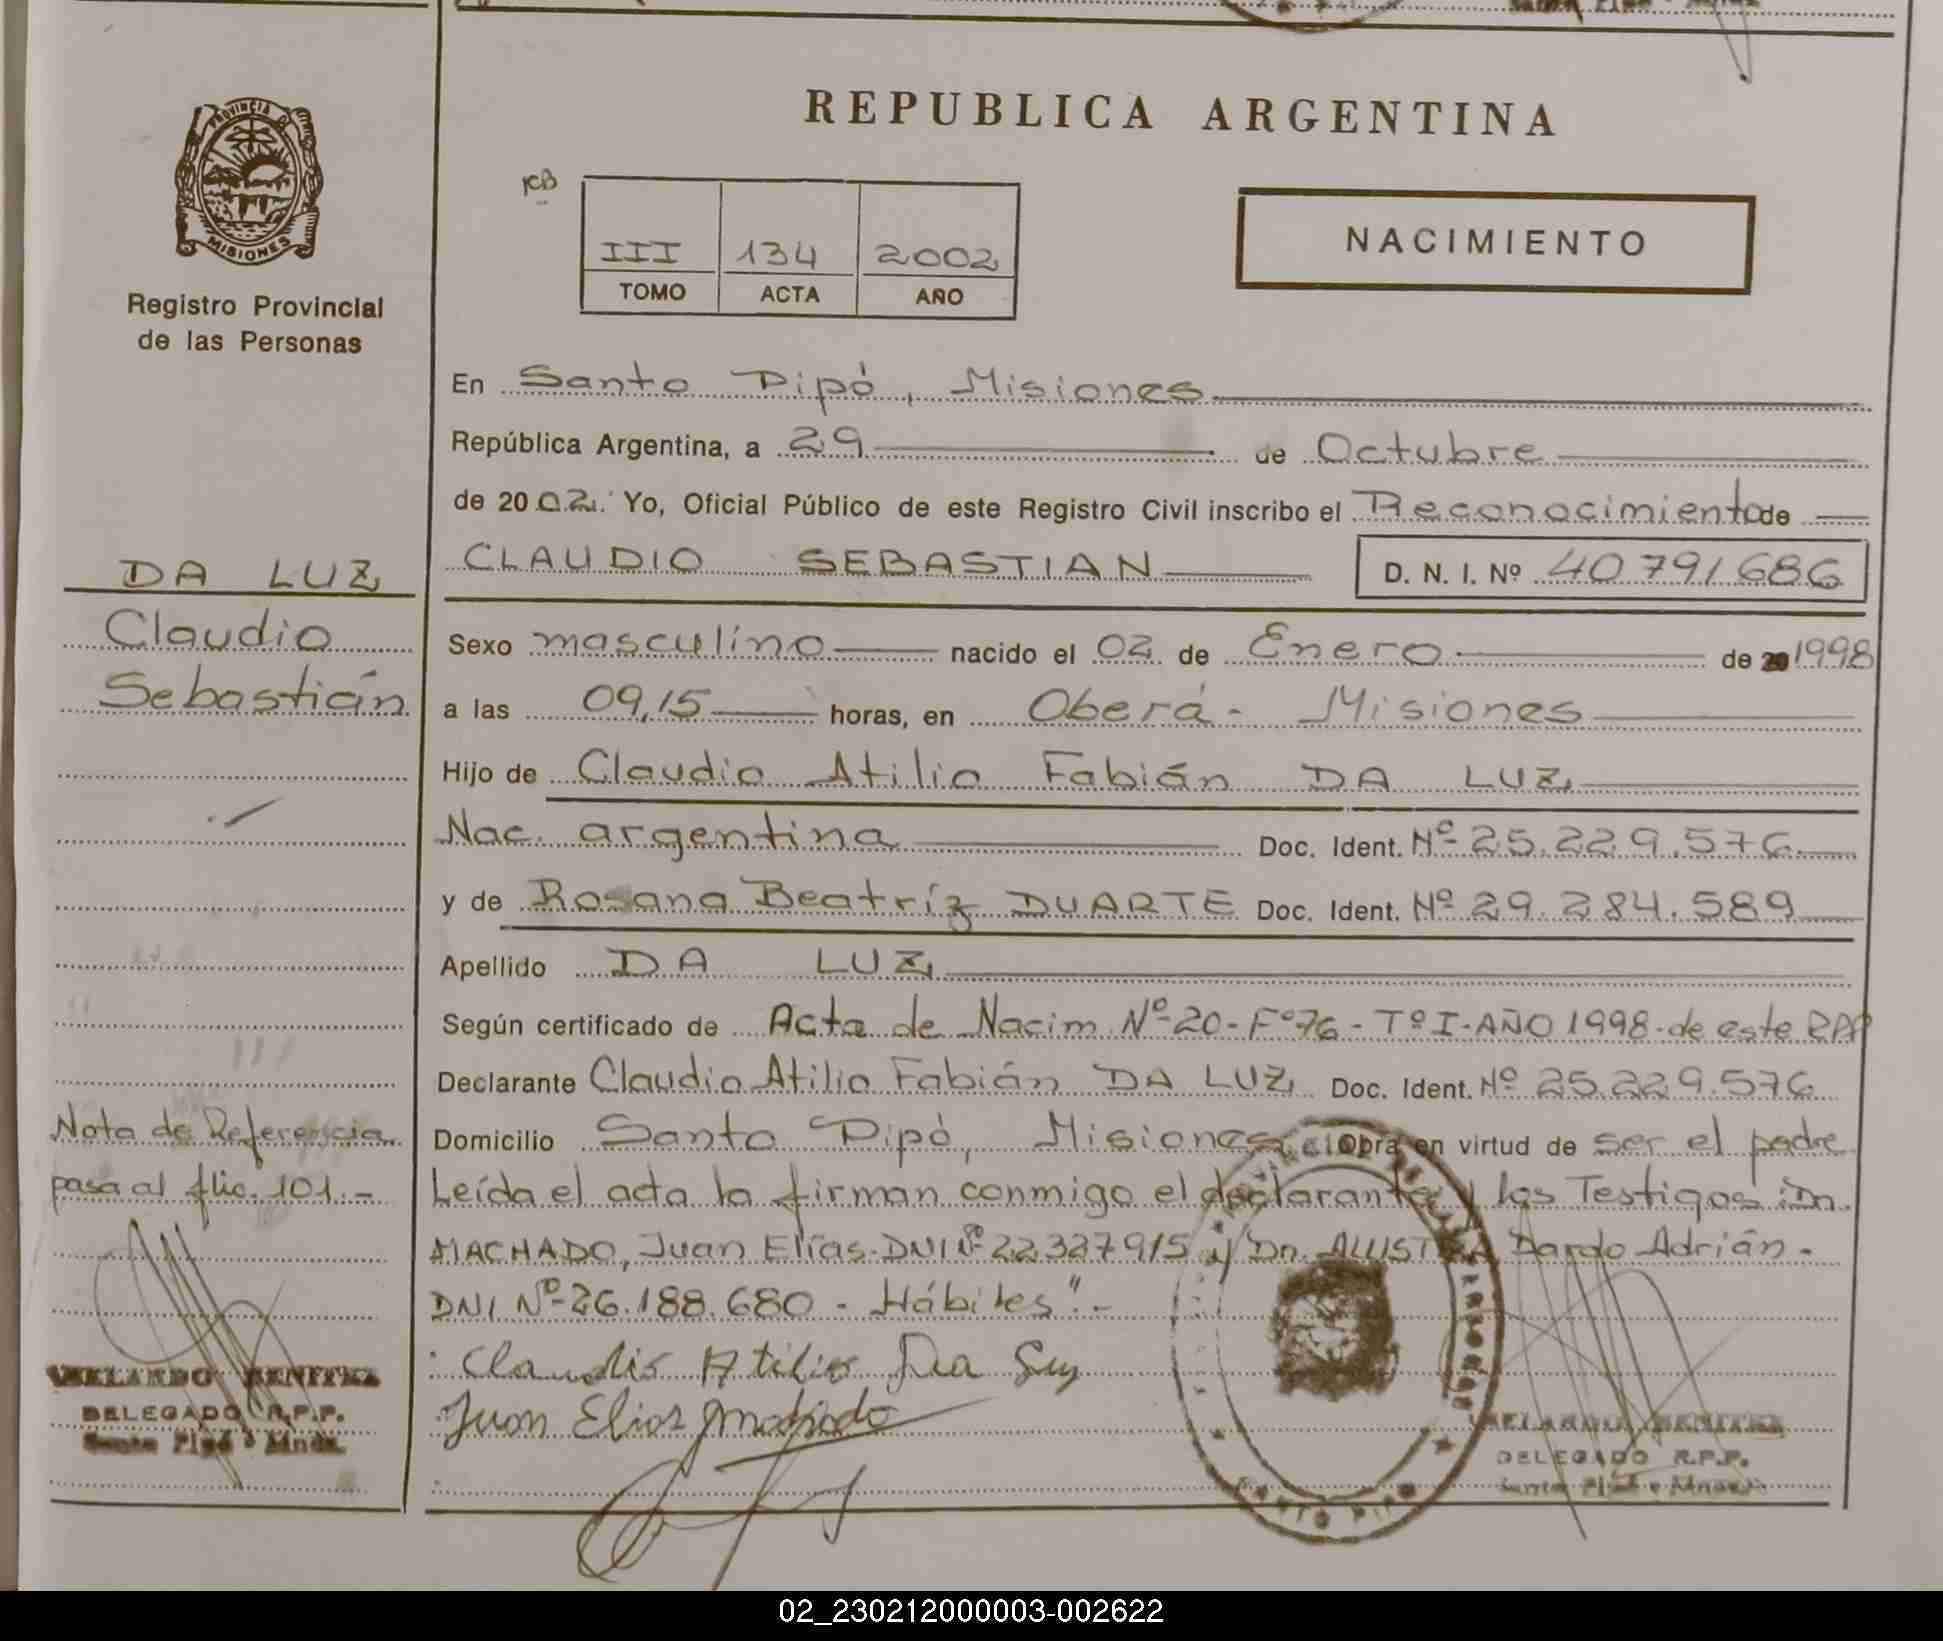 PROVINCIA D
MISIONES
Registro Provincial
de las Personas
DA LUZ
Claudio
Sebastián
Nota de Referencia
pasa al flio. 101.-
DELEGADO R.P.P.
Santo Pipó - Mnes.
REPUBLICA ARGENTINA
III 134 2002
TOMO ACTA AÑO
NACIMIENTO
En Santo Pipó, Misiones
República Argentina, a 29 de Octubre
de 2002. Yo, Oficial Público de este Registro Civil inscribo el Reconocimiento de
CLAUDIO SEBASTIAN D. N. I. Nº 40791686
Sexo masculino nacido el 02 de Enero de 20 1998
a las 09,15 horas, en Oberá - Misiones
Hijo de Claudio Atilio Fabián DA LUZ
Nac. argentina Doc. Ident. Nº 25.229.576
y de Rosana Beatríz DUARTE Doc. Ident. Nº 29.284.589
Apellido DA LUZ
Según certificado de Acta de Nacim. Nº-20-Fº76-TºI-AÑO 1998-de este RPP
Declarante Claudio Atilio Fabián DA LUZ Doc. Ident. Nº 25.229.576
Domicilio Santo Pipó, Misiones Obra en virtud de ser el padre
Leída el acta la firman conmigo el declarante y los Testigos: Dn.
MACHADO, Juan Elías-DNI Nº-22327915 y Dn. Dardo Adrián-
DNI Nº-26.188.680 - Hábiles".-
Claudio Atilio Da Luz
Juan Elias Machado
DELEGADO R.P.P.
Santo Pipó - Mnes.
SANTO PIPO
02_230212000003-002622